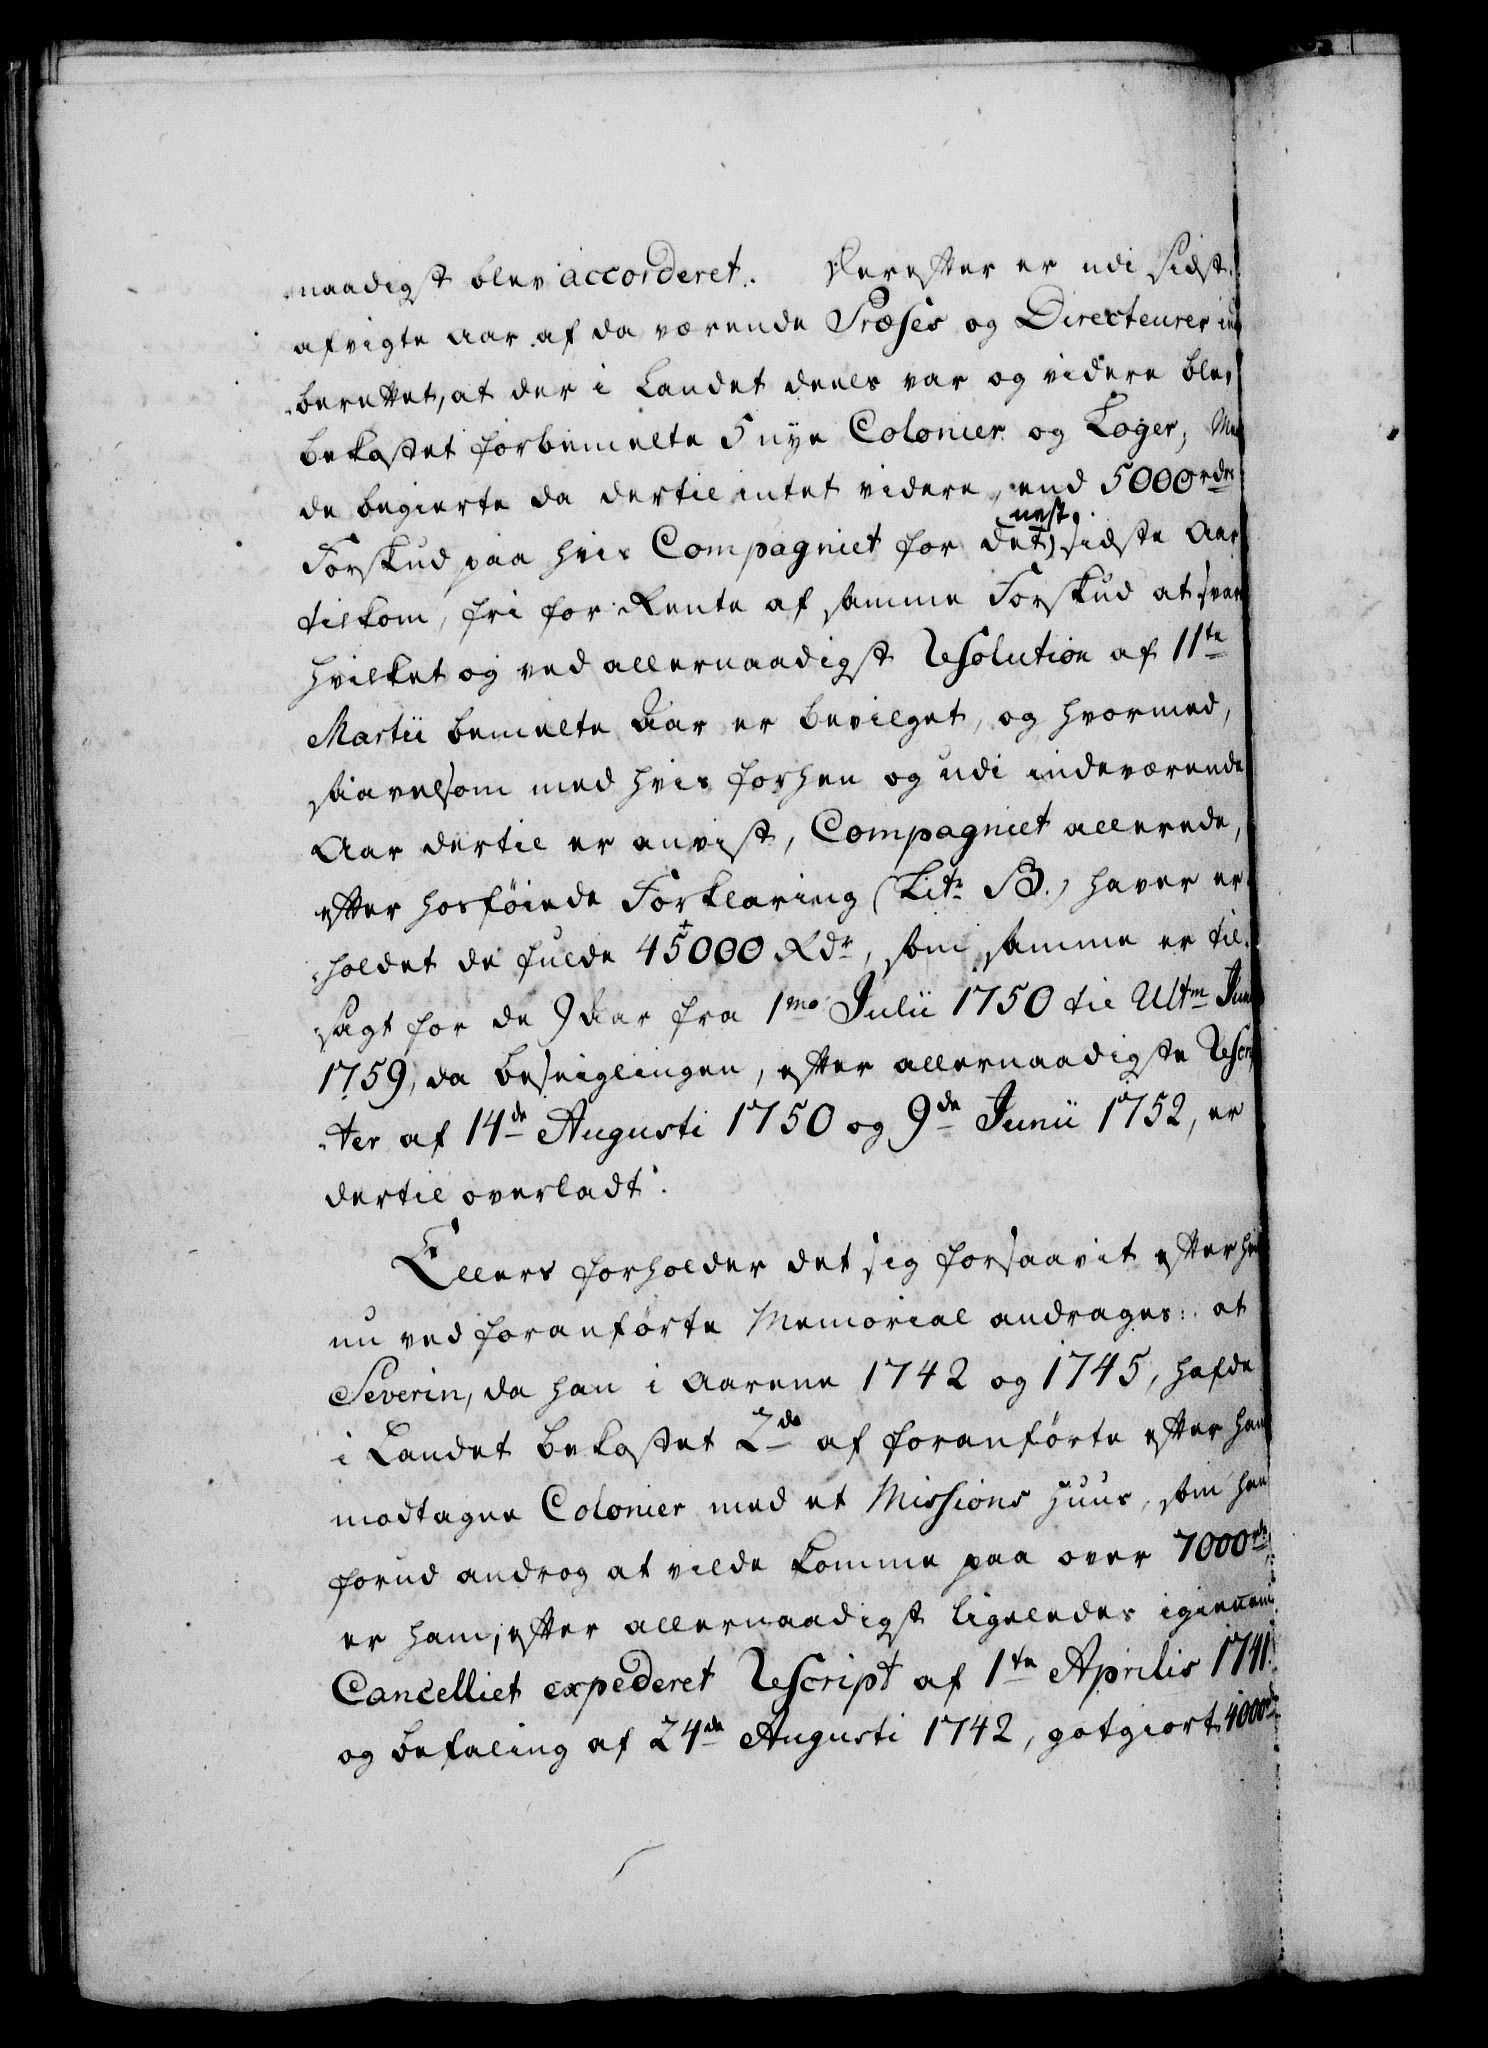 naadigst blev accorderet. Derefter er udi sidst
afvigte Aar af da værende Præses og Directeurer ind
berettet, at der i Landet deels var og videre blev
bekostet forbemelte 5 nye Colonier og Loger; Men
de begierte da dertil intet videre, end 5000 rdr
Forskud paa hvis Compagniet for det næst sidste Aar
tilkom, fri for Rente af samme Forskud at svare
hvilket og ved allernaadigst Resolution af 11te
Martii bemelte Aar er bevilget, og hvormed,
saavelsom med hvis forhen og udi indeværende
Aar dertil er anvist, Compagniet allerede,
efter hosføiede Forklaring (Litr B.) haver er
holdet de fulde 45000 Rdr, som samme er til
sagt for de 9 Aar fra 1mo Julii 1750 til Ultm Junii
1759, da beseiglingen, efter allernaadigste Rescrip
ter af 14de Augusti 1750 og 9de Junii 1752, er
dertil overladt.
Ellers forholder det sig forsaavit efter hvis
nu ved foranførte Memorial andrages: at
Severin, da han i Aarene 1742 og 1745, hafde
i Landet bekostet 2de af foranførte efter ham
modtagne Colonier med et Missions Huus, som han
forud androg at vilde komme paa over 7000 rdr
er ham, efter allernaadigst ligeledes igiennem
Cancelliet expederet Rescript af 1te Aprilis 1741
og befaling af 24de Augusti 1742, gotgiort 4000 rdr